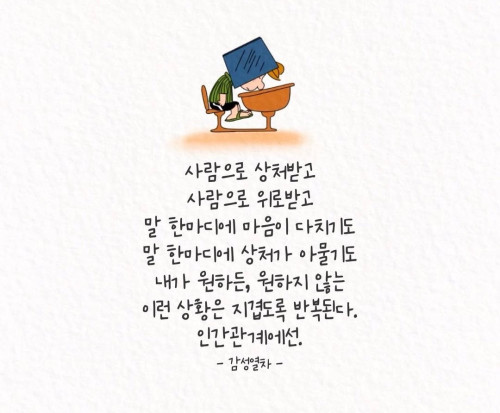 사람으로 상처받고
사람으로 위로받고
말 한마디에 마음이 다치기도
말 한마디에 상처가 아물기도
내가 원하든, 원하지 않는
이런 상황은 지겹도록 반복된다.
인간관계에선.
- 감성열차 -